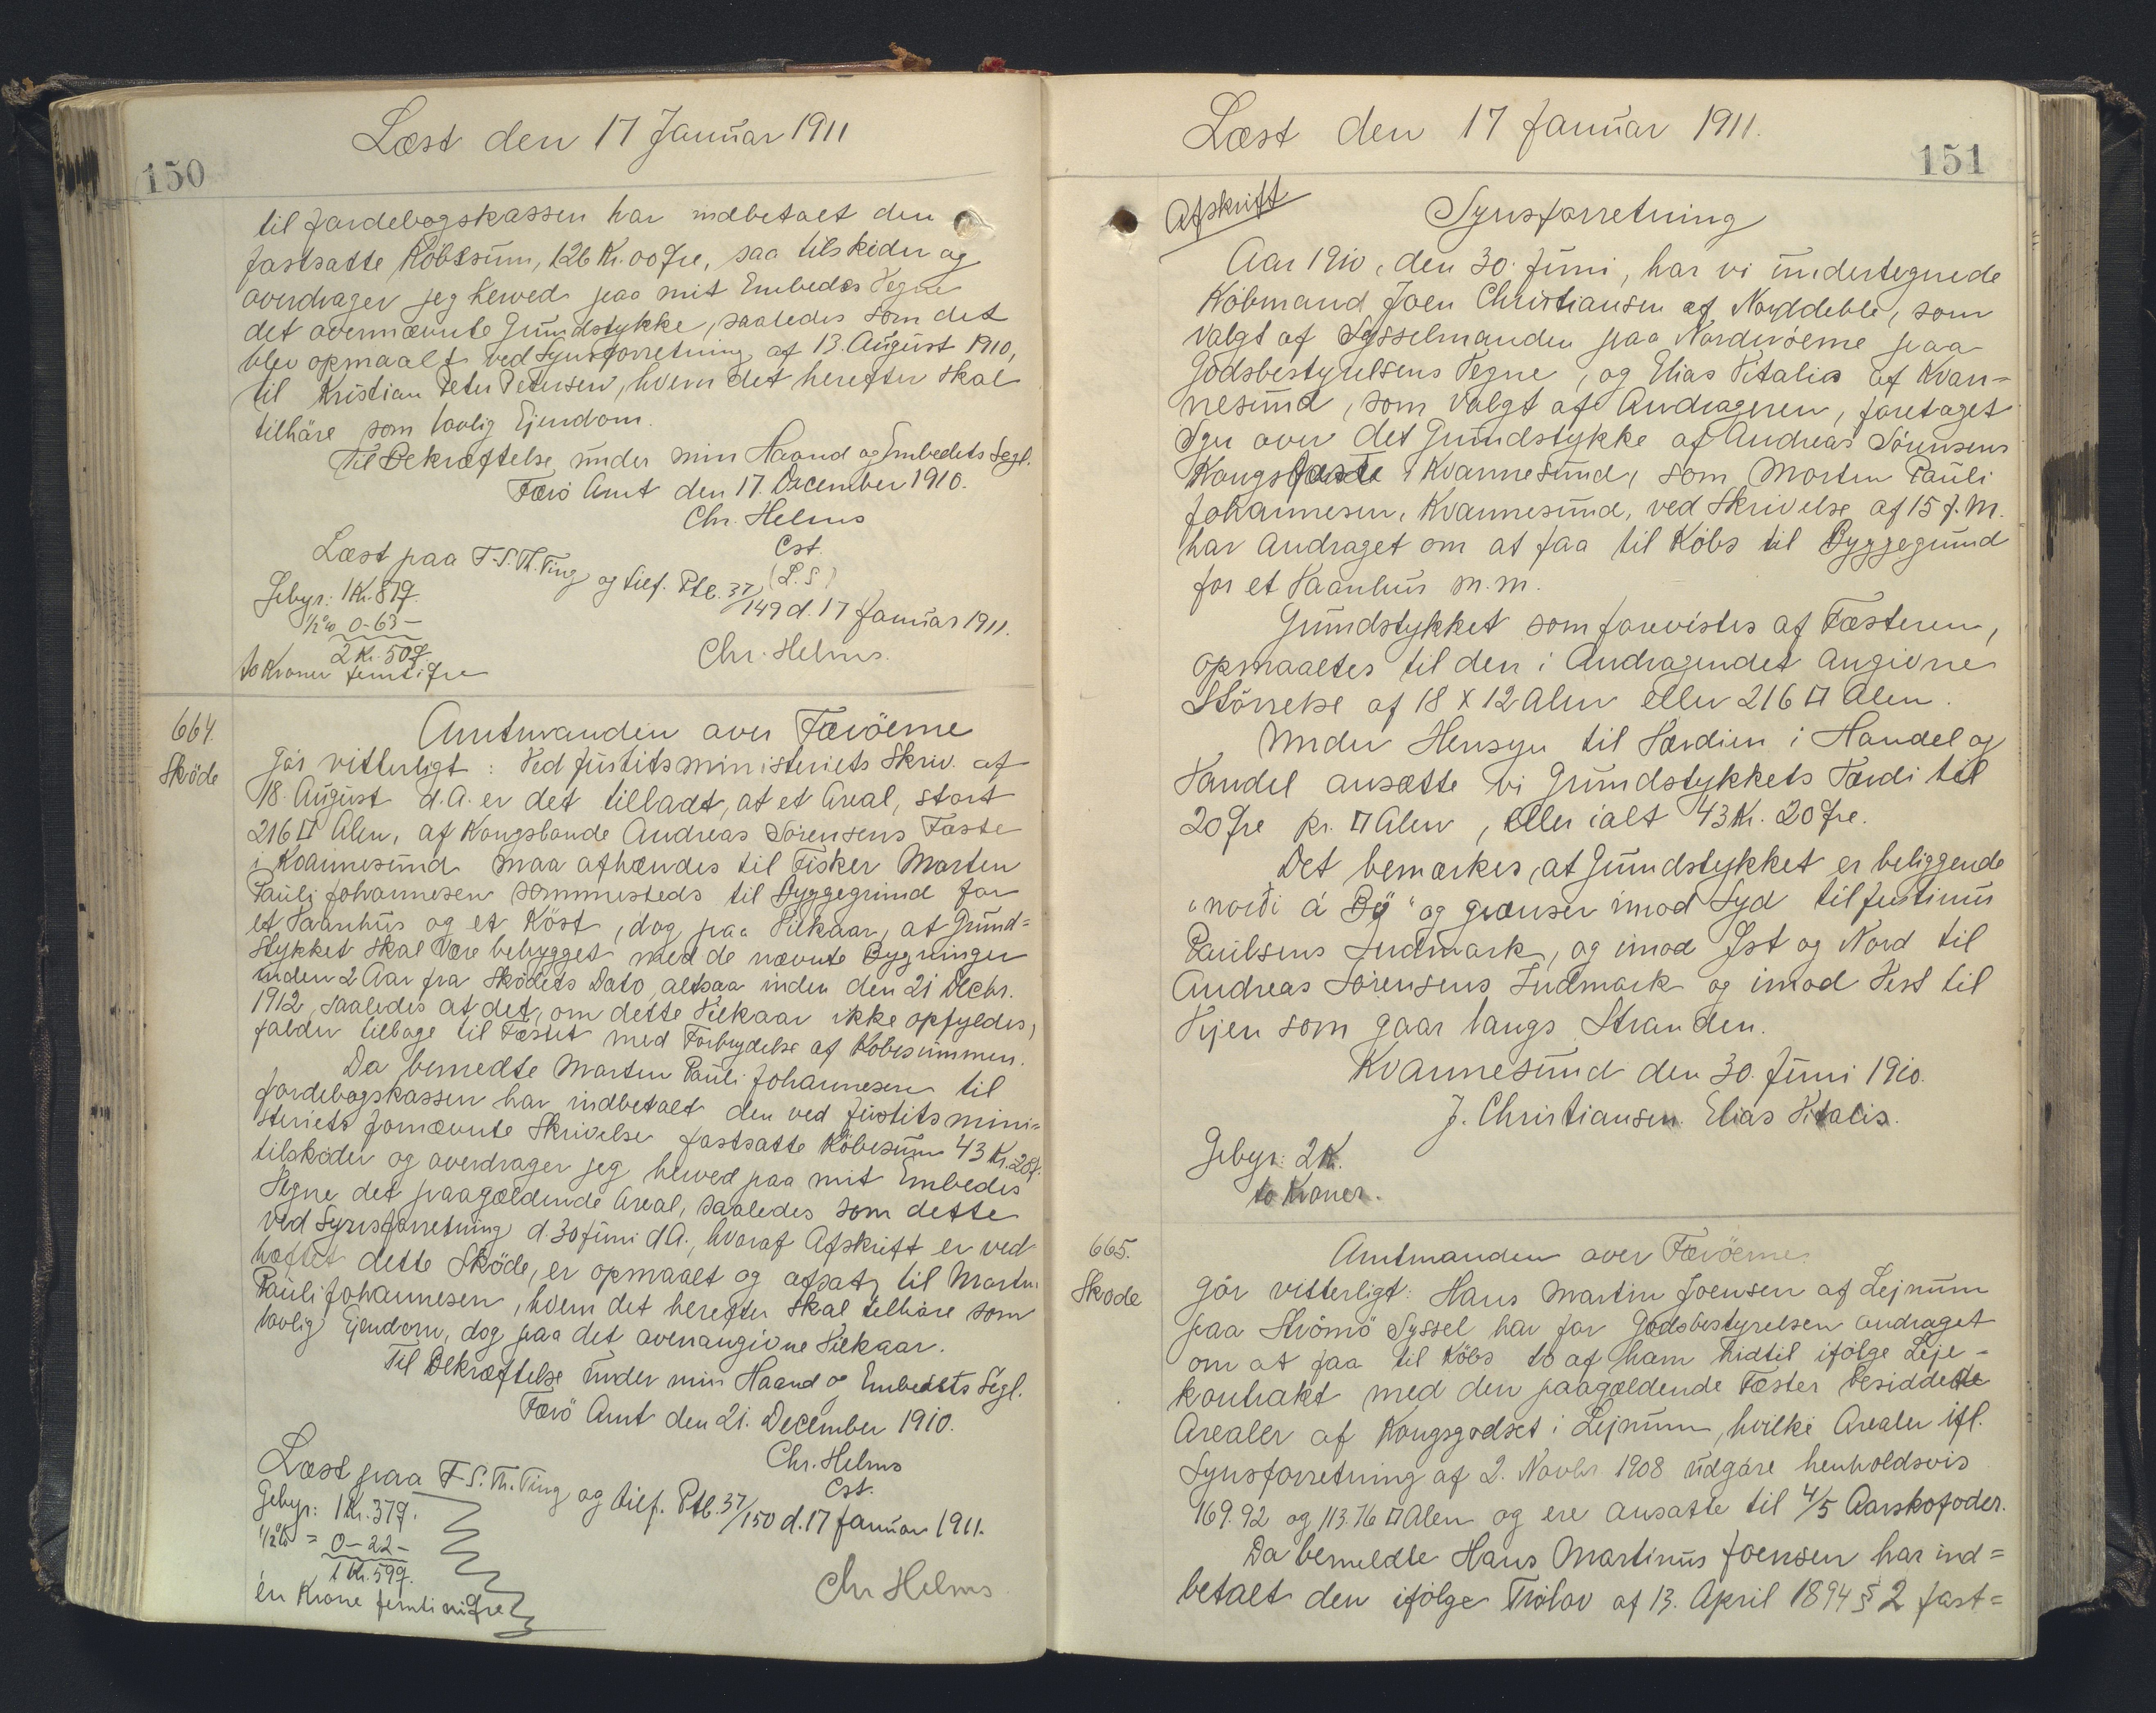 Læst den 17 Januar 1911
150
til Jordebogskassen har indbetalt den
fastsatte Köbesum, 126 Kr. 00 Øre, saa tilskøder og
overdrager jeg herved paa mit Embedes Vegne
det ovennævnte Grundstykke, saaledes som det
blev opmaalt ved Synsforretning af 13. August 1910,
til Kristian Peter Petersen, hvem det herefter skal
tilhöre som lovlig Ejendom.
Til Bekræftelse under min Haand og Embedets Segl.
Færö Amt den 17. December 1910.
Chr. Helms
Cst.
(L.S)
Læst paa F-S.Th.Ting og tilf. Ptb. 37/149 d. 17 Januar 1911.
Gebyr: 1 Kr. 87 Ø.
1/2 % 0-63-
2 Kr. 50 Ø
to Kroner femti Øre
Chr. Helms.
664.
Sköde
Amtmanden over Færöerne
Gör vitterligt: Ved Justitsministeriets Skriv. af
18. August d.A. er det tilladt, at et Areal, stort
216 □ Alen, af Kongsbonde Andreas Sörensens Fæste
i Kvannesund maa afhændes til Fisker Morten
Pauli Johannesen sammesteds til Byggegrund for
et Vaanhus og et Köst, dog paa Vilkaar, at Grund=
stykket skal være bebygget med de nævnte Bygninger
inden 2 Aar fra Sködets Dato, altsaa inden den 21 Decbr.
1912, saaledes at det, om dette Vilkaar ikke opfyldes,
falder tilbage til Fæstet med Forbrydelse af Köbesummen.
Da bemeldte Morten Pauli Johannesen til
Jordebogskassen har indbetalt den ved Justitsmini=
steriets fornævnte Skrivelse fastsatte Köbesum 43 Kr. 20 Ø.
tilsköder og overdrager jeg herved paa mit Embedes
Vegne det paagældende Areal, saaledes som dette
ved Synsforretning d. 30 Juni d.A., hvoraf Afskrift er ved
hæftet dette Sköde, er opmaalt og afsat, til Morten
Pauli Johannesen, hvem det herefter skal tilhöre som
lovlig Ejendom, dog paa det ovenangivne Vilkaar.
Til Bekræftelse under min Haand og Embedets Segl.
Færö Amt den 21. December 1910.
Chr. Helms
Cst.
Læst paa F-S.Th.Ting og tilf. Ptb. 37/150 d. 17 Januar 1911.
Gebyr: 1 Kr. 37 Ø.
1/2 % = 0-22-
1 Kr. 59 Ø.
én Krone femti ni Øre
Chr Helms
Læst den 17 Januar 1911.
151
Afskrift
Synsforretning
Aar 1910, den 30. Juni, har vi undertegnede
Köbmand Joen Christiansen af Norddeble, som
valgt af Sysselmanden paa Norderöerne paa
Godsbestyrelsens Vegne, og Elias Vitalis af Kvan=
nesund, som valgt af Andrageren, foretaget
Syn over det Grundstykke af Andreas Sörensens
Kongsfæste i Kvannesund, som Morten Pauli
Johannesen, Kvannesund, ved Skrivelse af 15 f. M.
har andraget om at faa til Köbs til Byggegrund
for et Vaanhus m.m.
Grundstykket som forevistes af Fæsteren,
opmaaltes til den i Andragendet angivne
Störrelse af 18 x 12 Alen eller 216 □ Alen.
Under Hensyn til Værdien i Handel og
Vandel ansætte vi Grundstykkets Værdi til
20 Øre pr. □ Alen, eller ialt 43 Kr. 20 Øre.
Det bemærkes, at Grundstykket er beliggende
"norði á Bø" og grænser imod Syd til Justinus
Paulsens Indmark, og imod Øst og Nord til
Andreas Sörensens Indmark og imod Vest til
Vejen som gaar langs Stranden.
Kvannesund den 30. Juni 1910.
J. Christiansen. Elias Vitalis.
Gebyr: 2 K.
to Kroner.
665.
Sköde
Amtmanden over Færöerne
Gör vitterligt: Hans Martin Joensen af Lejnum
paa Strömö Syssel har for Godsbestyrelsen andraget
om at faa til Köbs to af ham hidtil ifölge Leje-
kontrakt med den paagældende Fæster besiddede
Arealer af Kongsgodset i Lejnum, hvilke Arealer ifl.
Synsforretning af 2. Novbr 1908 udgöre henholdsvis
169.92 og 113.76 □ Alen og ere ansatte til 4/5 Aarskofoder.
Da bemeldte Hans Martinus Joensen har ind=
betalt den ifölge Trölov af 13. April 1894 § 2 fast=